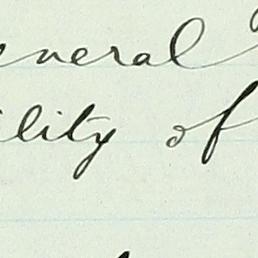 eneral
ility of